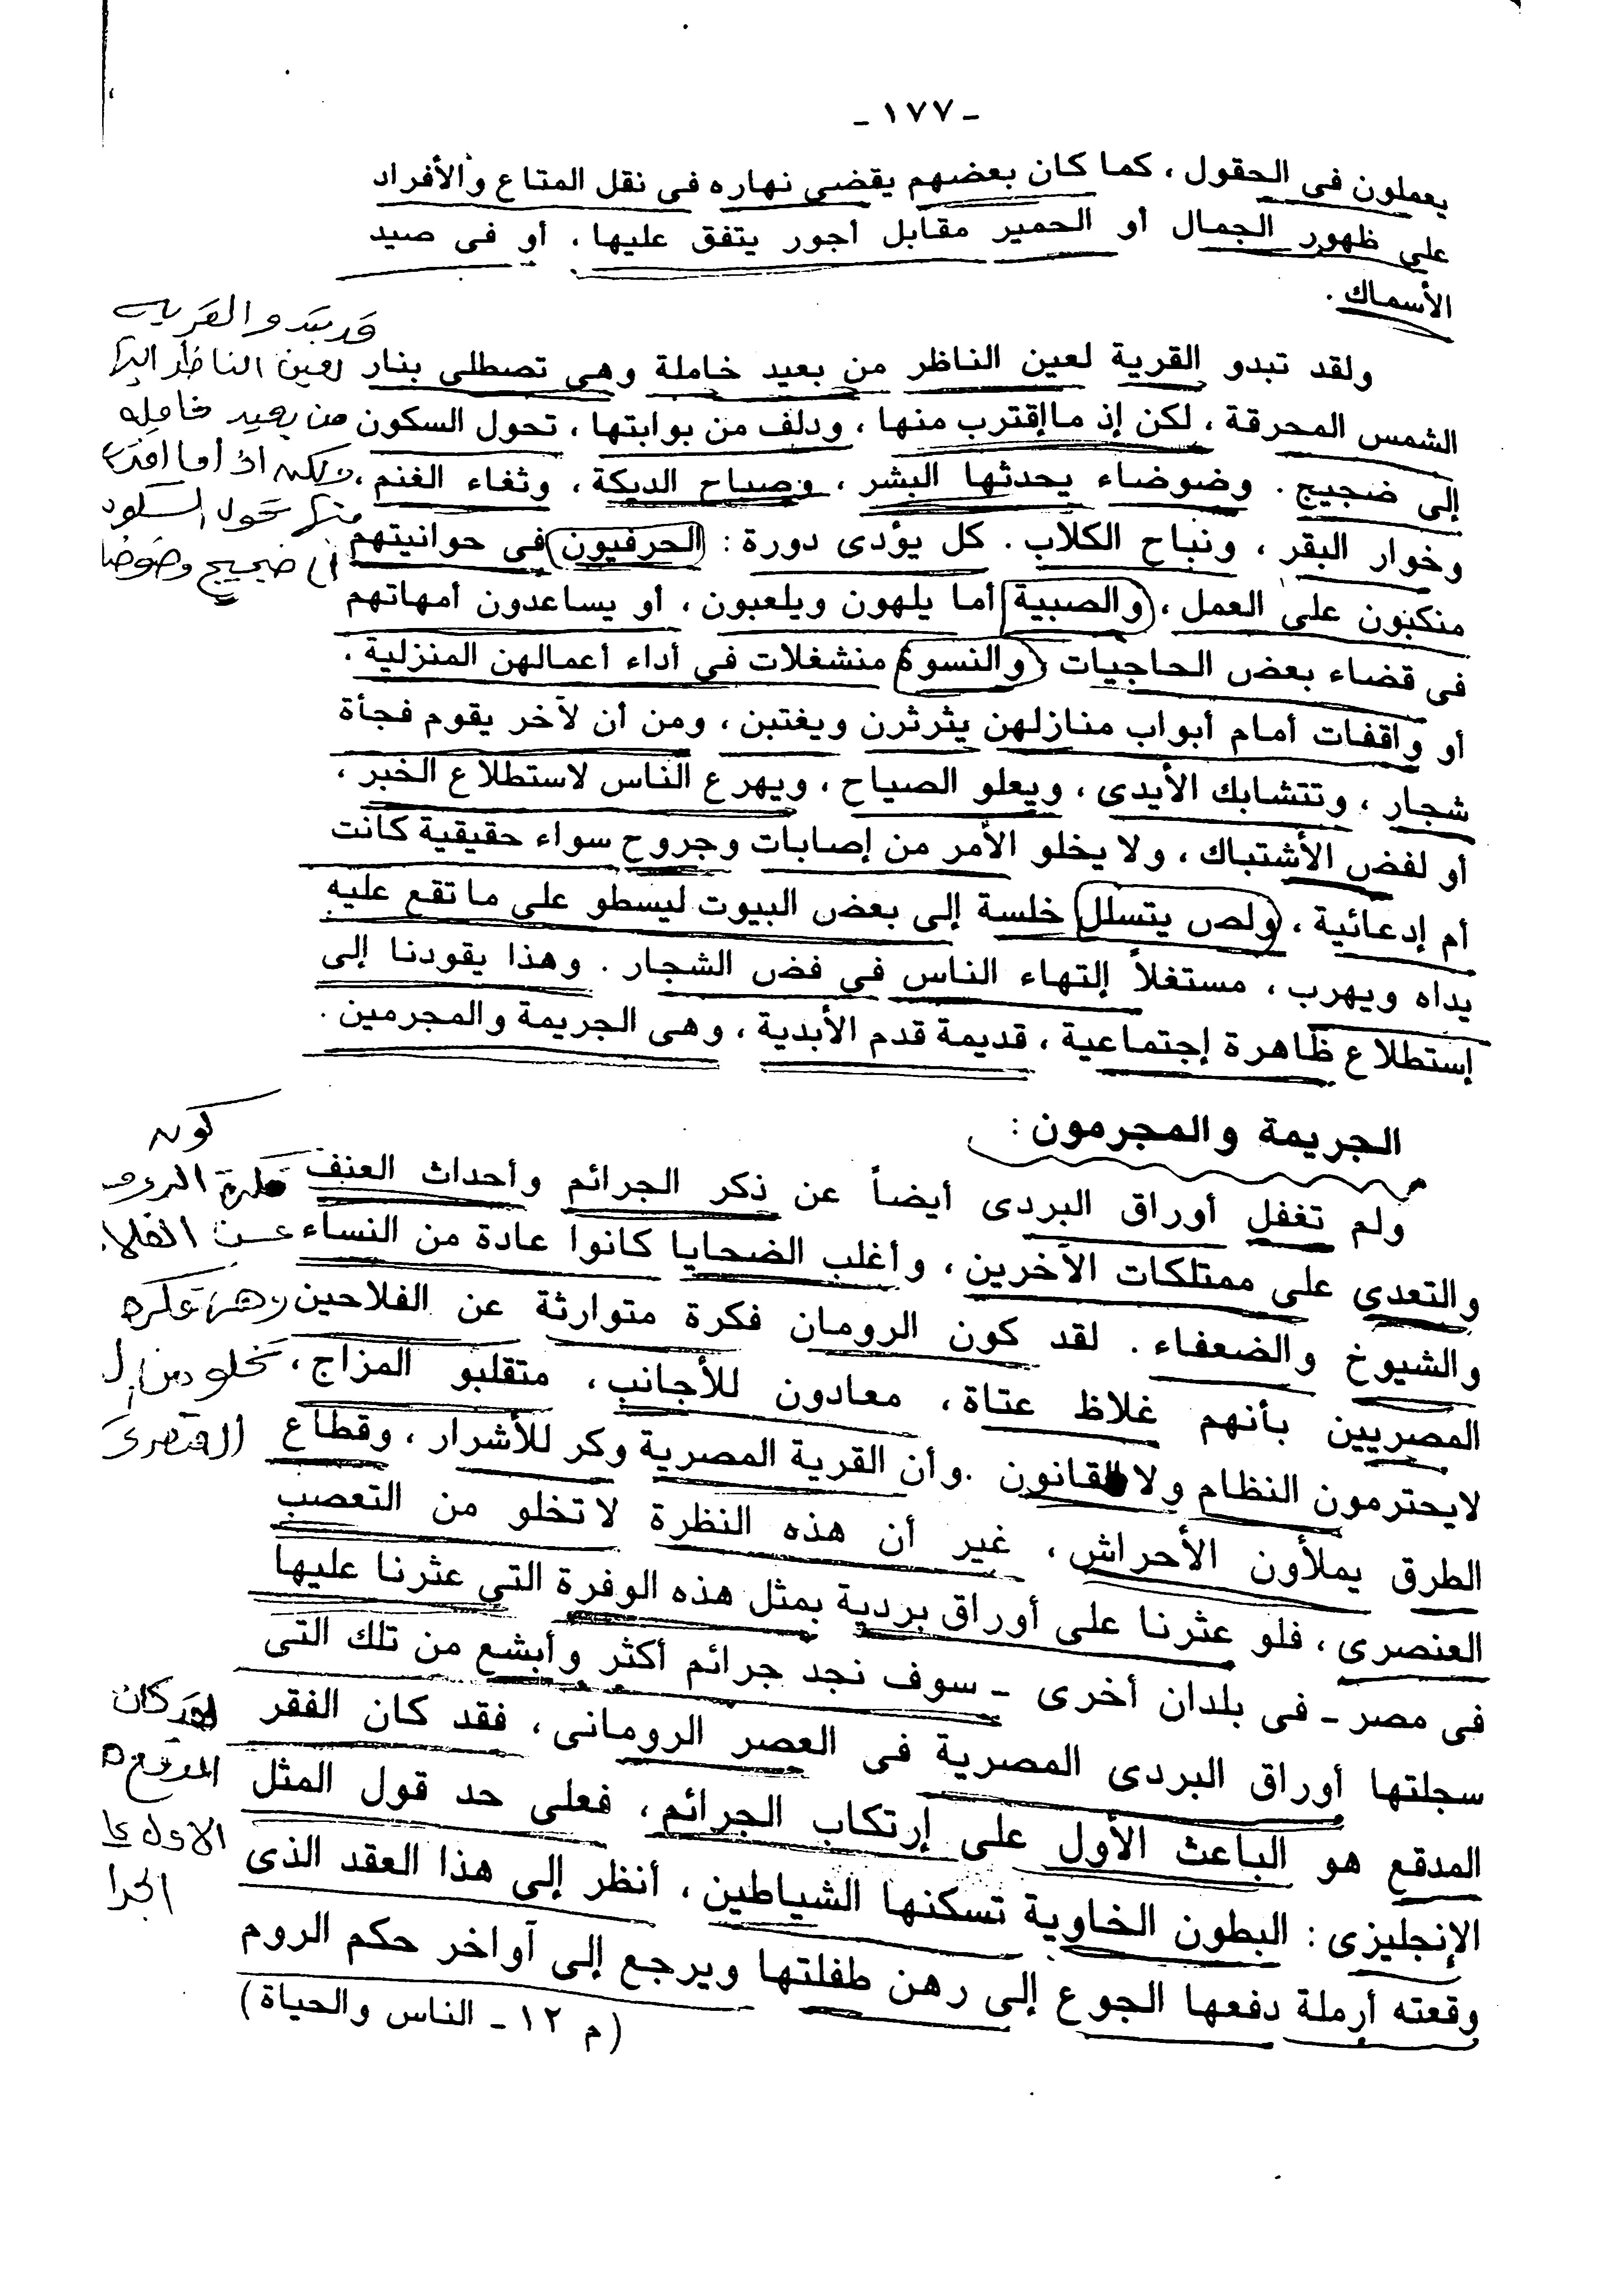 - ١٧٧ -
يعملون فى الحقول ، كما كان بعضهم يقضى نهاره فى نقل المتاع والأفراد
على ظهور الجمال أو الحمير مقابل أجور يتفق عليها ، أو فى صيد
الأسماك .
ولقد تبدو القرية لعين الناظر من بعيد خاملة وهى تصطلى بنار
الشمس المحرقة ، لكن إذ ماإقترب منها ، ودلف من بوابتها ، تحول السكون
إلى ضجيج . وضوضاء يحدثها البشر ، وصياح الديكة ، وثغاء الغنم ،
وخوار البقر ، ونباح الكلاب . كل يؤدى دورة : الحرفيون فى حوانيتهم
منكبون على العمل ، والصبية أما يلهون ويلعبون ، أو يساعدون أمهاتهم
فى قضاء بعض الحاجيات ، والنسوة منشغلات فى أداء أعمالهن المنزلية ،
أو واقفات أمام أبواب منازلهن يثرثرن ويغتبن ، ومن أن لآخر يقوم فجأة
شجار ، وتتشابك الأيدى ، ويعلو الصياح ، ويهرع الناس لاستطلاع الخبر ،
أو لفض الأشتباك ، ولا يخلو الأمر من إصابات وجروح سواء حقيقية كانت
أم إدعائية ، ولص يتسلل خلسة إلى بعض البيوت ليسطو على ماتقع عليه
يداه ويهرب ، مستغلاً إلتهاء الناس فى فض الشجار . وهذا يقودنا إلى
إستطلاع ظاهرة إجتماعية ، قديمة قدم الأبدية ، وهى الجريمة والمجرمين .
قد يبدو القريه
لعين الناظر اليها
من بعيد خامله
ولكن اذ أما
منها تحول السكون
الى ضجيج وضوضا
الجريمة والمجرمون :
ولم تغفل أوراق البردى أيضاً عن ذكر الجرائم وأحداث العنف
والتعدى على ممتلكات الآخرين ، وأغلب الضحايا كانوا عادة من النساء
والشيوخ والضعفاء . لقد كون الرومان فكرة متوارثة عن الفلاحين
المصريين بأنهم غلاظ عتاة ، معادون للأجانب ، متقلبو المزاج ،
لايحترمون النظام ولا القانون . وأن القرية المصرية وكر للأشرار ، وقطاع
الطرق يملأون الأحراش ، غير أن هذه النظرة لاتخلو من التعصب
العنصرى ، فلو عثرنا على أوراق بردية بمثل هذه الوفرة التي عثرنا عليها
فى مصر - فى بلدان أخرى - سوف نجد جرائم أكثر وأبشع من تلك التى
سجلتها أوراق البردى المصرية فى العصر الرومانى ، فقد كان الفقر
المدقع هو الباعث الأول على إرتكاب الجرائم ، فعلى حد قول المثل
الإنجليزى : البطون الخاوية تسكنها الشياطين ، أنظر إلى هذا العقد الذى
وقعته أرملة دفعها الجوع إلى رهن طفلتها ويرجع إلى آواخر حكم الروم
كون
عن الفلا
تخلو من
العنصرى
كان
المدقع
الجرا
( م ١٢ - الناس والحياة )